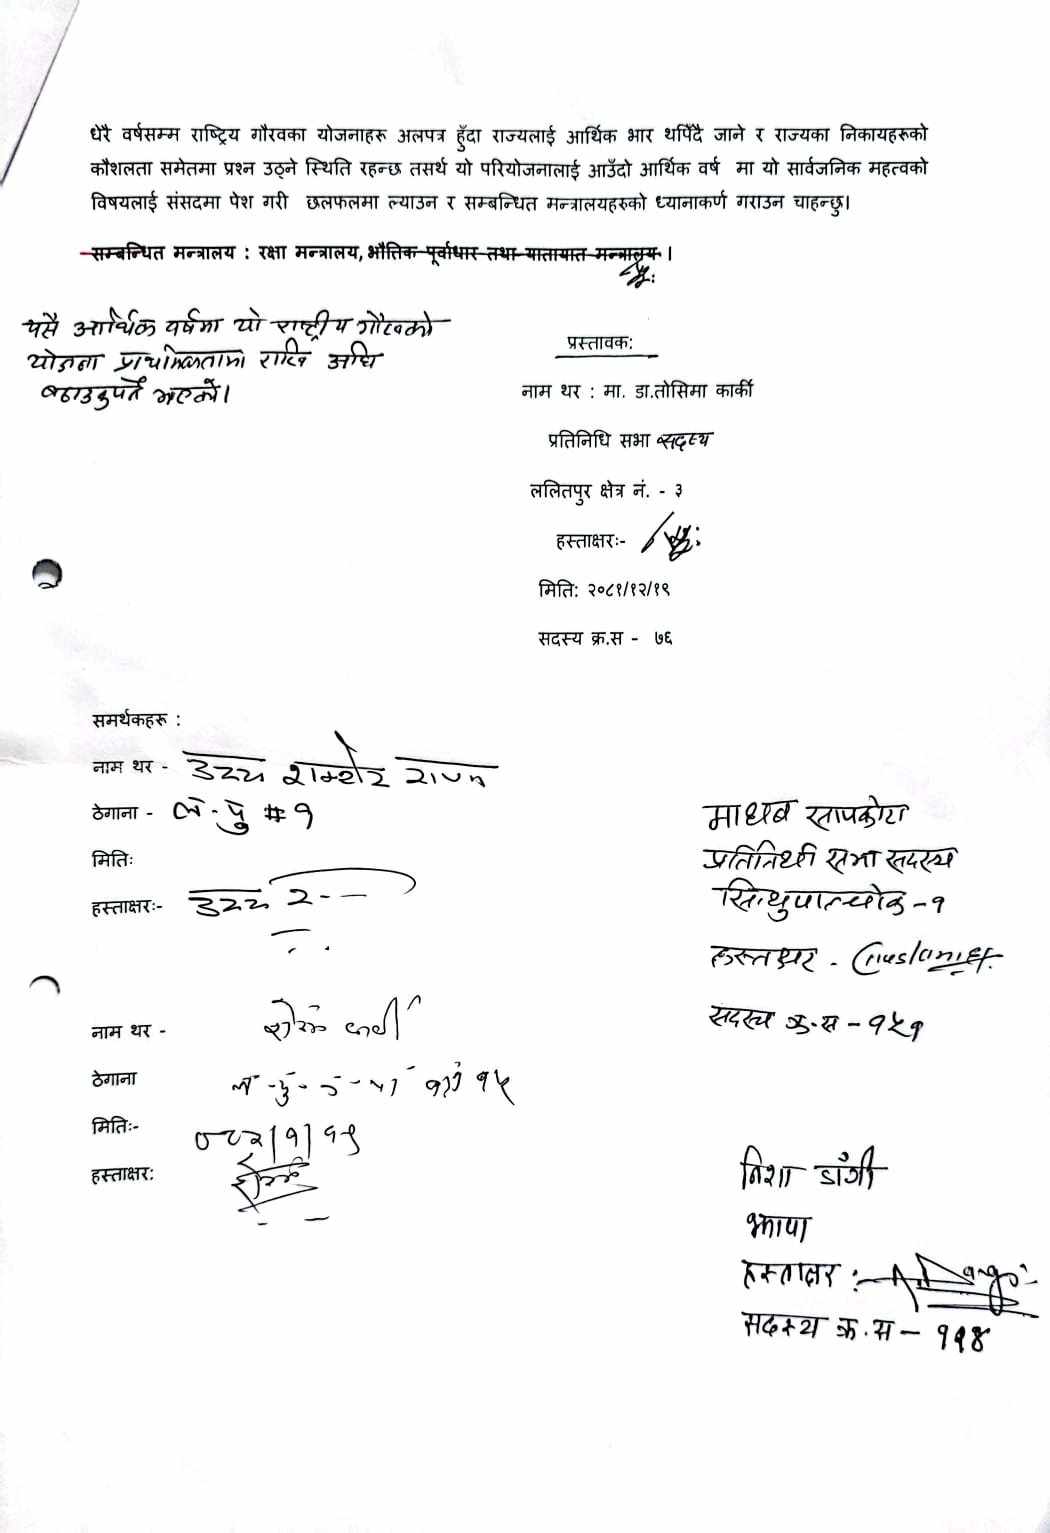 धेरै वर्षसम्म राष्ट्रिय गौरवका योजनाहरू अलपत्र हुँदा राज्यलाई आर्थिक भार थपिँदै जाने र राज्यका निकायहरूको
कौशलता समेतमा प्रश्न उठ्ने स्थिति रहन्छ तसर्थ यो परियोजनालाई आउँदो आर्थिक वर्ष मा यो सार्वजनिक महत्वको
विषयलाई संसदमा पेश गरी छलफलमा ल्याउन र सम्बन्धित मन्त्रालयहरुको ध्यानाकर्ण गराउन चाहन्छु।
सम्बन्धित मन्त्रालय : रक्षा मन्त्रालय, भौतिक पूर्वाधार तथा यातायात मन्त्रालय ।
यसै आर्थिक वर्षमा यो राष्ट्रीय गौरवको
योजना प्राथमिकतामा राखि अघि
बढाउनुपर्ने भएको।
प्रस्तावक:
नाम थर : मा. डा.तोसिमा कार्की
प्रतिनिधि सभा सदस्य
ललितपुर क्षेत्र नं. - ३
हस्ताक्षरः-
मिति: २०८१/१२/१९
सदस्य क्र.स - ७६
समर्थकहरू :
नाम थर - उदय शम्शेर राणा
ठेगाना - ल.पु #१
मितिः
हस्ताक्षरः- उदय
माधव सापकोटा
प्रतिनिधी सभा सदस्य
सिन्धुपाल्चोक - १
हस्ताक्षर -
सदस्य क्र.स - १५१
नाम थर -
ठेगाना
मितिः-
हस्ताक्षर:
निशा डाँगी
झापा
हस्ताक्षर :
सदस्य क्र.स - ११४